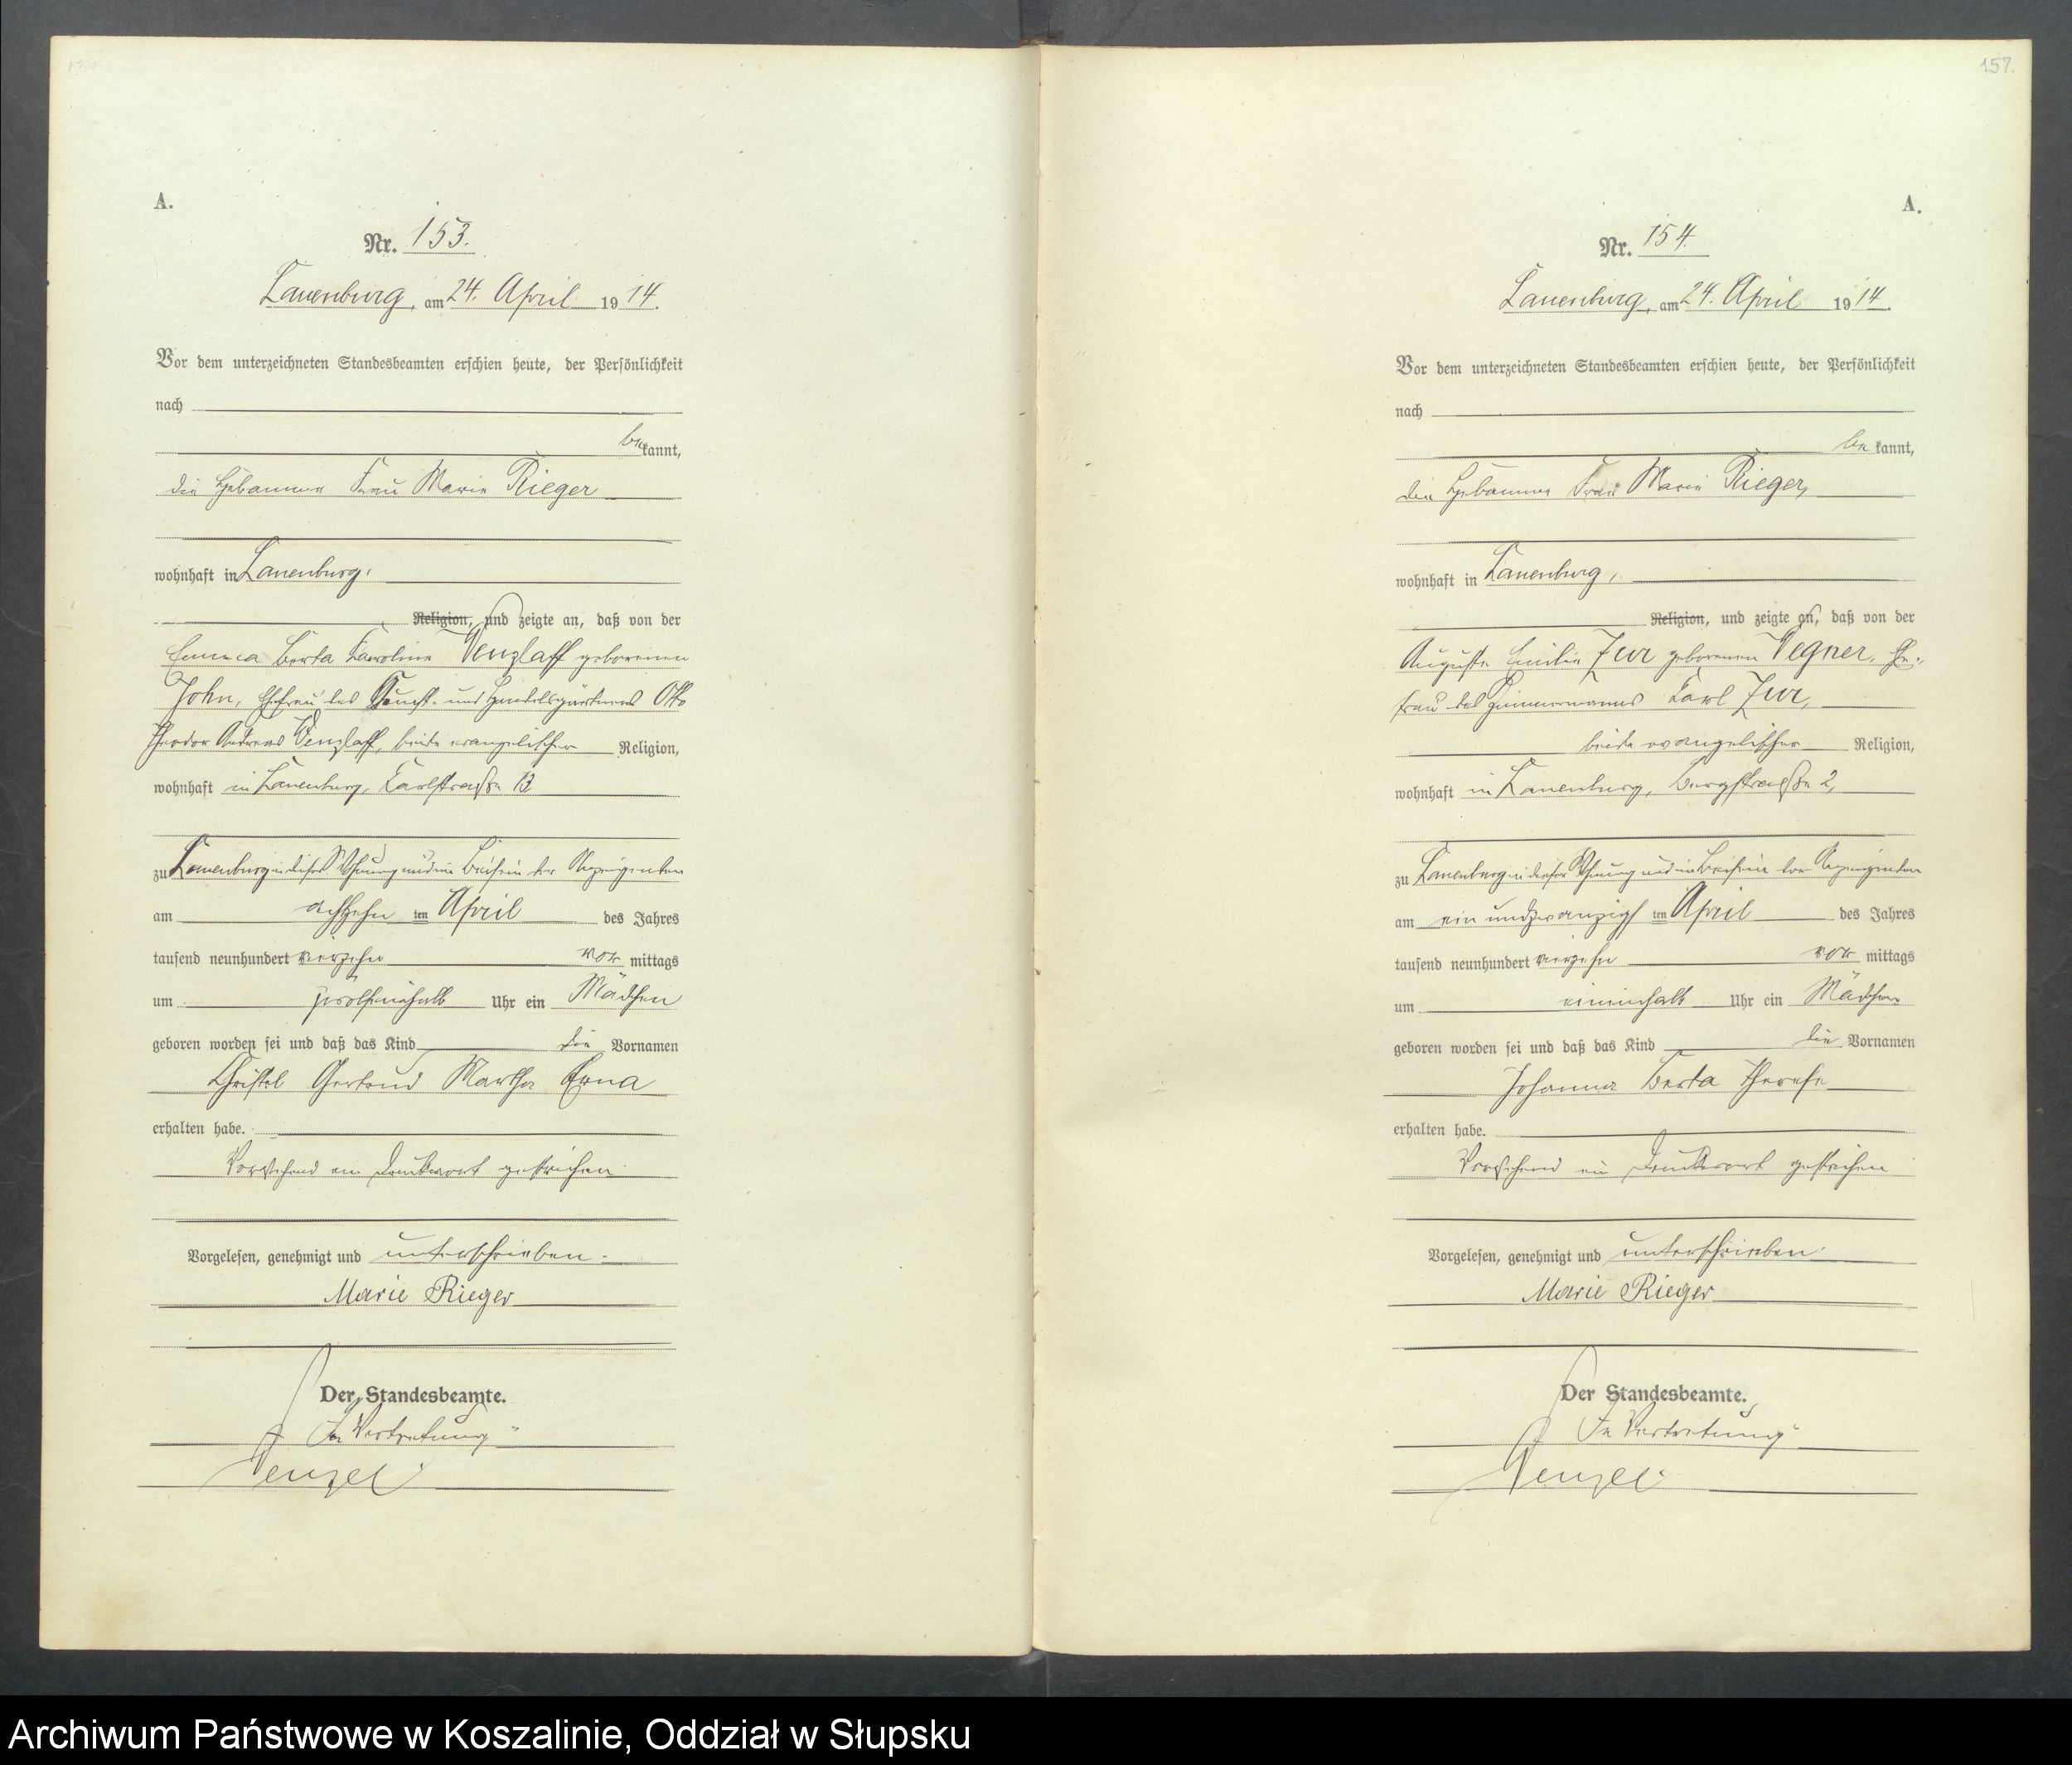 A.
Nr. 153.
Lauenburg, am 24. April 1914.
Vor dem unterzeichneten Standesbeamten erschien heute, der Persönlichkeit
nach
bekannt,
die Hebamme Frau Marie Rieger
wohnhaft in Lauenburg,
Religion, und zeigte an, daß von der
Emma Berta Karoline Venzlaff geborenen
John, Ehefrau des Kunst- und Handelsgärtners Otto
Theodor Andreas Venzlaff, beide evangelischer Religion,
wohnhaft in Lauenburg, Karlstraße
zu Lauenburg in dieser Wohnung und im Beisein der Anzeigenden
am achtzehn ten April des Jahres
tausend neunhundert vierzehn vor mittags
um zwölfeinhalb Uhr ein Mädchen
geboren worden sei und daß das Kind die Vornamen
Christel Gertrud Martha Erna
erhalten habe.
Vorstehend ein Druckwort gestrichen.
Vorgelesen, genehmigt und unterschrieben.
Marie Rieger
Der Standesbeamte.
In Vertretung
Wenzel
157.
A.
Nr. 154.
Lauenburg, am 24. April 1914.
Vor dem unterzeichneten Standesbeamten erschien heute, der Persönlichkeit
nach
bekannt,
die Hebamme Frau Marie Rieger,
wohnhaft in Lauenburg,
Religion, und zeigte an, daß von der
Auguste Emilie Zur geborenen Wegner, Ehe-
frau des Zimmermanns Karl Zur,
beide evangelischer Religion,
wohnhaft in Lauenburg, Bergstraße 2,
zu Lauenburg in dieser Wohnung und im Beisein der Anzeigenden
am ein und zwanzigsten April des Jahres
tausend neunhundert vierzehn vor mittags
um eineinhalb Uhr ein Mädchen
geboren worden sei und daß das Kind die Vornamen
Johanna Berta Therese
erhalten habe.
Vorstehend ein Druckwort gestrichen
Vorgelesen, genehmigt und unterschrieben.
Marie Rieger
Der Standesbeamte.
In Vertretung
Wenzel
Archiwum Państwowe w Koszalinie, Oddział w Słupsku